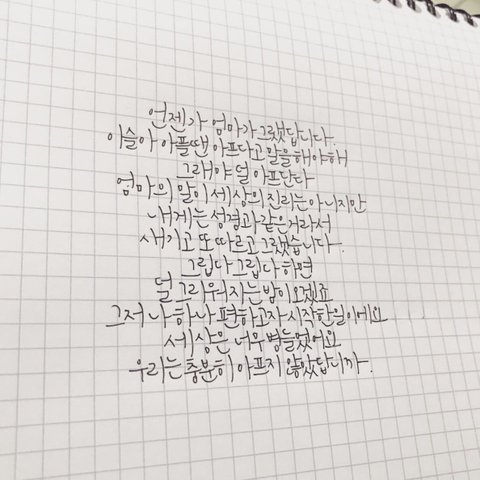 언젠가 엄마가 그랬답니다.
이슬아 아플땐 아프다고 말을 해야해
그래야 덜 아프단다
엄마의 말이 세상의 진리는 아니지만
내게는 성경과 같은거라서
새기고 또 따르고 그랬습니다.
그립다 그립다 하면
덜 그리워지는 밤이 오겠죠
그저 나 하나 편하고자 시작한 일이에요
세상은 너무 병들었어요
우리는 충분히 아프지 않았답니까.